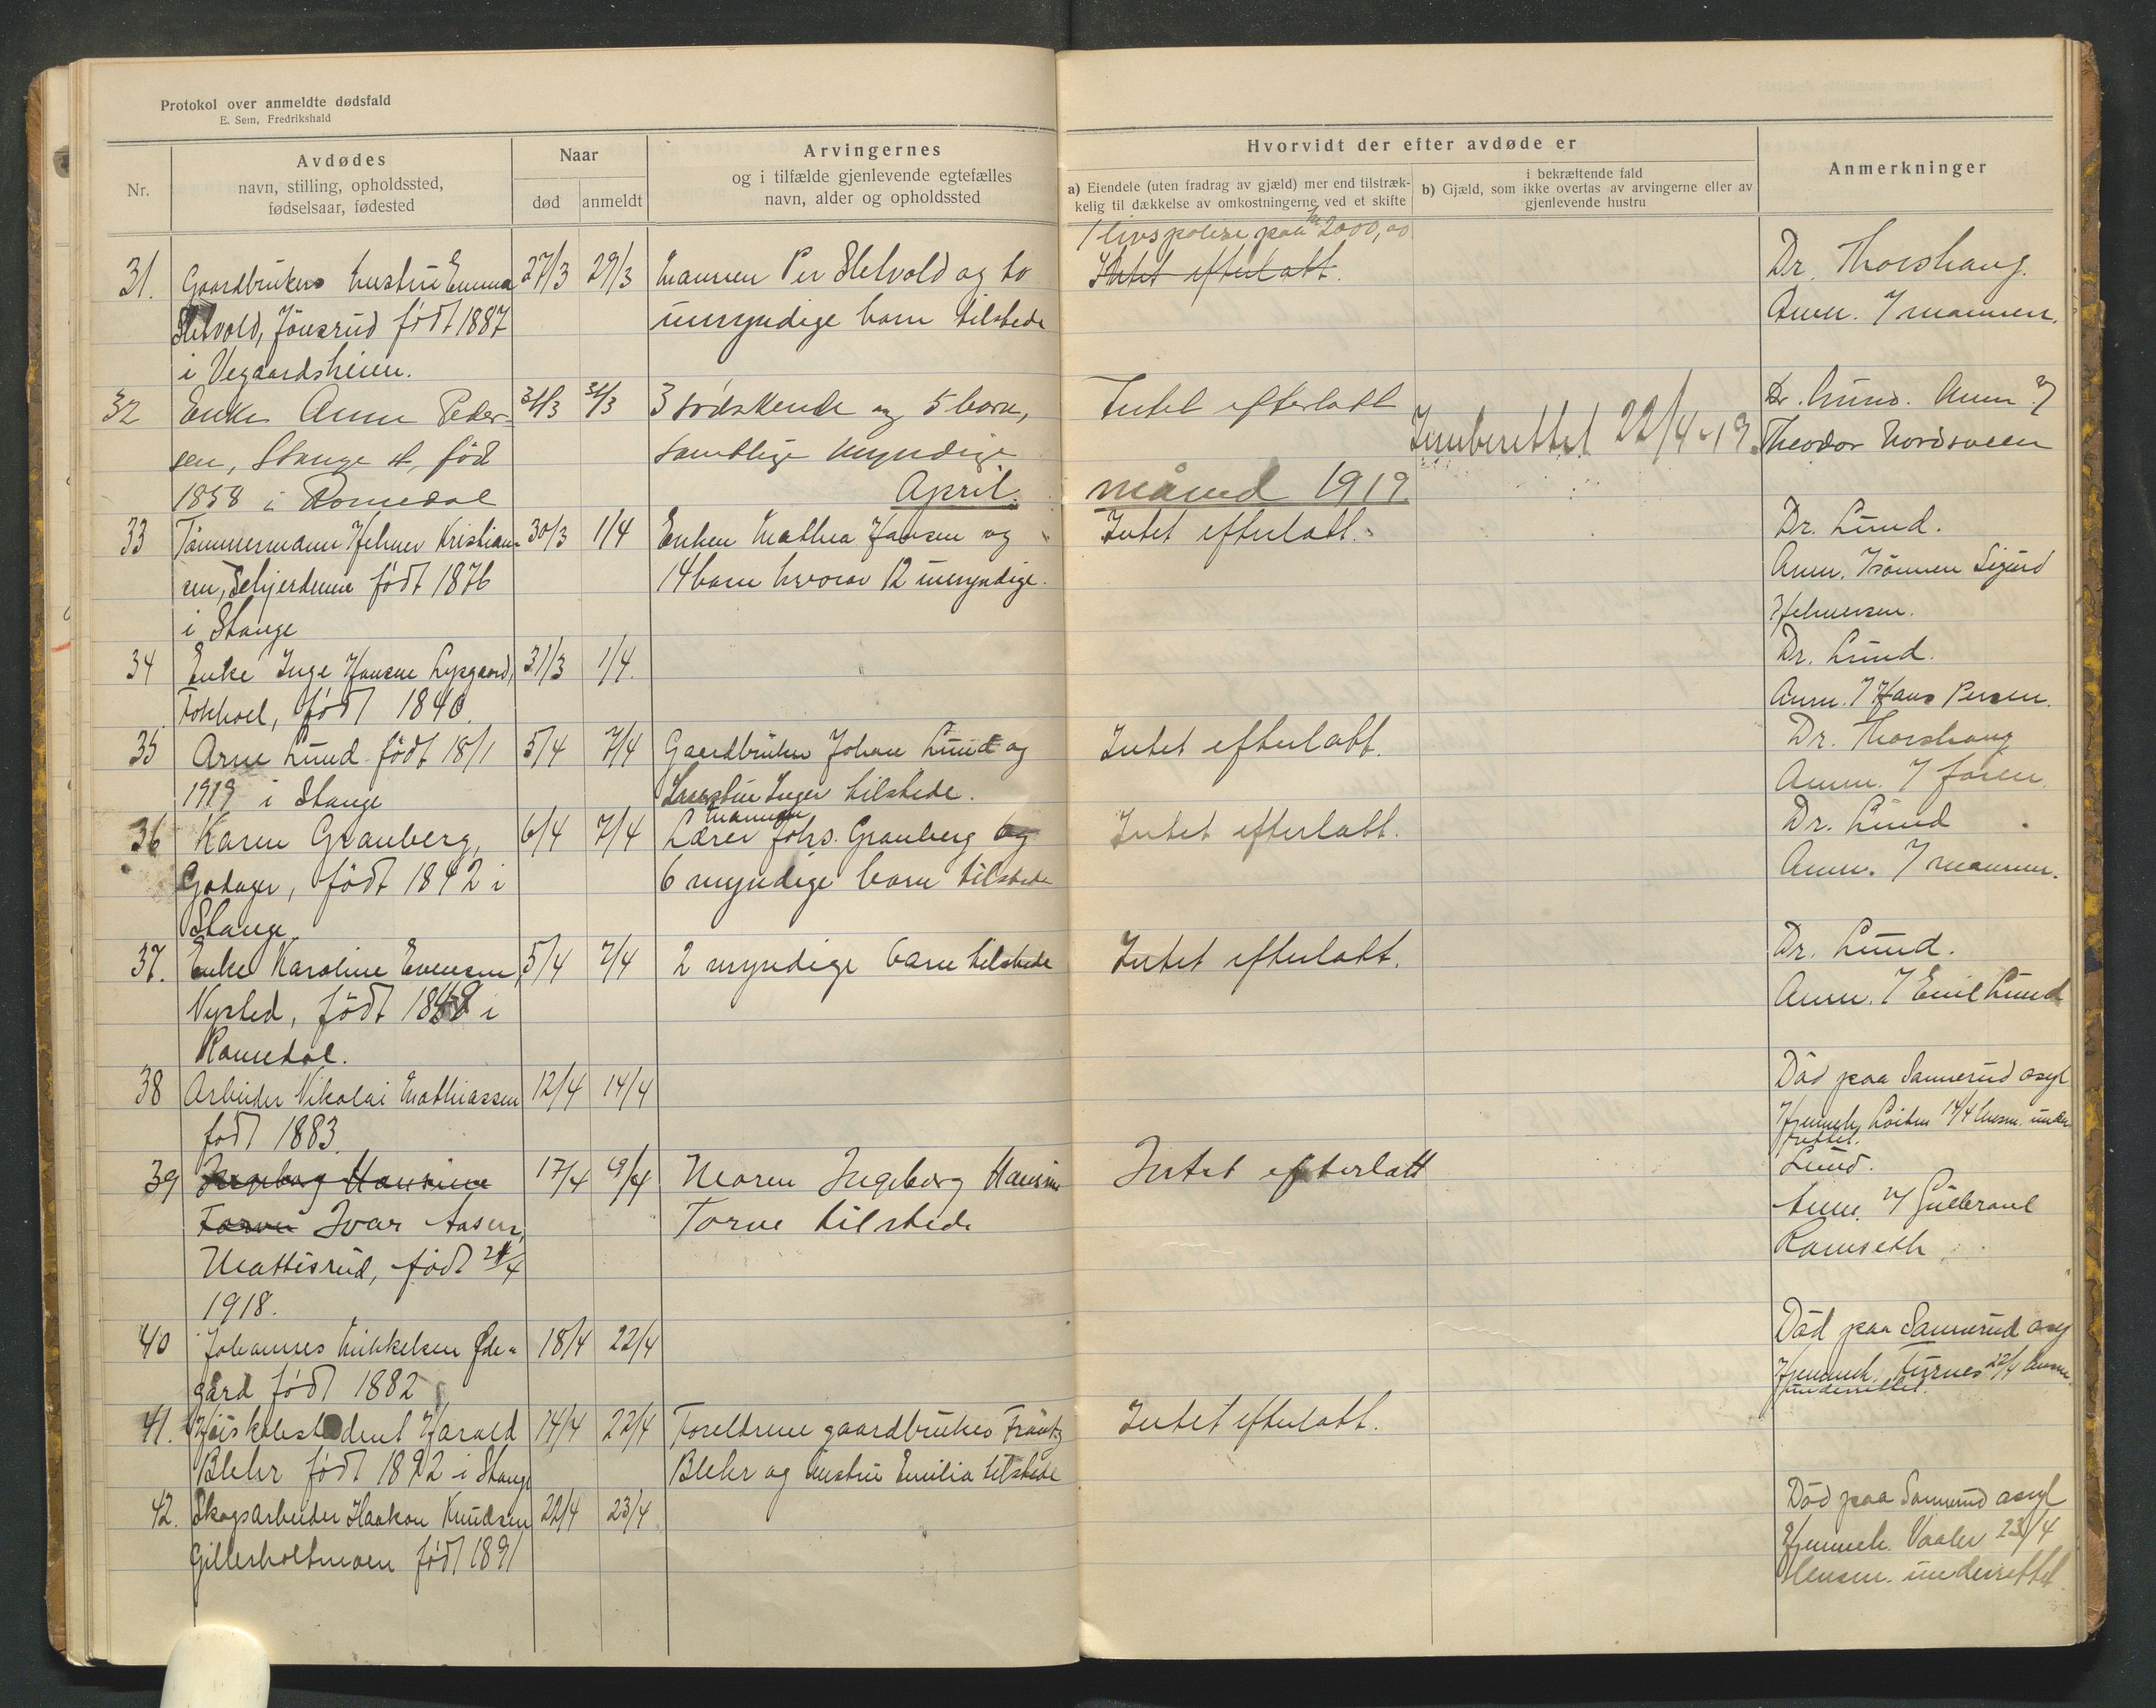 Protokol over anmeldte dødsfald
E. Sem, Fredrikshald
Nr.
Avdødes
navn, stilling, opholdssted,
fødselsaar, fødested
Naar
død
anmeldt
Arvingernes
og i tilfælde gjenlevende egtefælles
navn, alder og opholdssted
Hvorvidt der efter avdøde er
a) Eiendele (uten fradrag av gjæld) mer end tilstræk-
kelig til dækkelse av omkostningerne ved et skifte
i bekræftende fald
b) Gjæld, som ikke overtas av arvingerne eller av
gjenlevende hustru
Anmerkninger
31. Gaardbrukers hustru Emma 27/3 29/3 Manden Per Sletvold og to
Sletvold, Jönsrud födt 1887 umyndige barn tilstede
i Vegaardsheien.
1 livspolise paa kr 2000,00
Intet efterlatt.
Dr. Thorshaug.
Anm. 7 mannen.
32 Enke Anne Peder-
31/3 31/3 3 södskende og 5 barn,
sen, Stange st, född samtlige myndige
1858 i Romedal
Intet efterlatt
Innberettet 22/4-19.
Dr. Lund. Anm. 7
Theodor Nordsveen
April. måned 1919.
33 Tömmermann Helmer Kristian-
30/3 1/4 Enken Mathea Hansen og
sen, Sehjerdene födt 1876 14 barn hvorav 12 umyndige.
i Stange
Intet efterlatt.
Dr. Lund.
Anm. 7 sönnen Sigurd
Helmersen.
34 Enke Inge Hansen Lysgaard, 31/3 1/4.
Tokhoel, födt 1840.
Dr. Lund.
Anm. 7 Hans Persen.
35 Arne Lund födt 18/1 5/4 7/4 Gaardbruker Johan Lund og
1919 i Stange hustru Inger tilstede.
Intet efterlatt.
Dr. Thorshaug
Anm. 7 faren.
36 Karen Granberg, 6/4 7/4 Mannen Lærer Johs. Granberg og
Godager, födt 1842 i 6 myndige barn tilstede
Stange.
Intet efterlatt.
Dr. Lund
Anm. 7 mannen.
37. Enke Karoline Evensen, 5/4 7/4 2 myndige barn tilstede
Nysted, födt 1848 i
Romedal.
Intet efterlatt.
Dr. Lund.
Anm. 7 Emil Lund
38 Arbeider Nikolai Mathiassen 12/4 14/4
födt 1883.
Död paa Sannerud asyl
Hjemmeh. Löiten 14/4 lensm. under-
rettet.
39 Ingeborg Hansine 17/4 19/4 Moren Ingeborg Hansine
Torne Ivar Aasen, Torne tilstede
Mattisrud, födt 21/4
1918.
Intet efterlatt
Lund.
Anm. 7 Gulbrand
Ramseth
40 Johannes Mikkelsen Öde-
gård födt 1882
18/4 22/4
Död paa Sannerud asyl
Hjemmeh. Furnes 22/4 lensm.
underrettet.
41. Höiskolestudent Harald 14/4 22/4 Foreldrene gaardbruker Frantz
Blehr födt 1892 i Stange Blehr og hustru Emilia tilstede
Intet efterlatt.
42. Skogsarbeider Haakon Knudsen 22/4 23/4
Gillerholtmoen födt 1891
Död paa Sannerud asyl
Hjemmeh. Vaaler 23/4
lensm. underrettet.